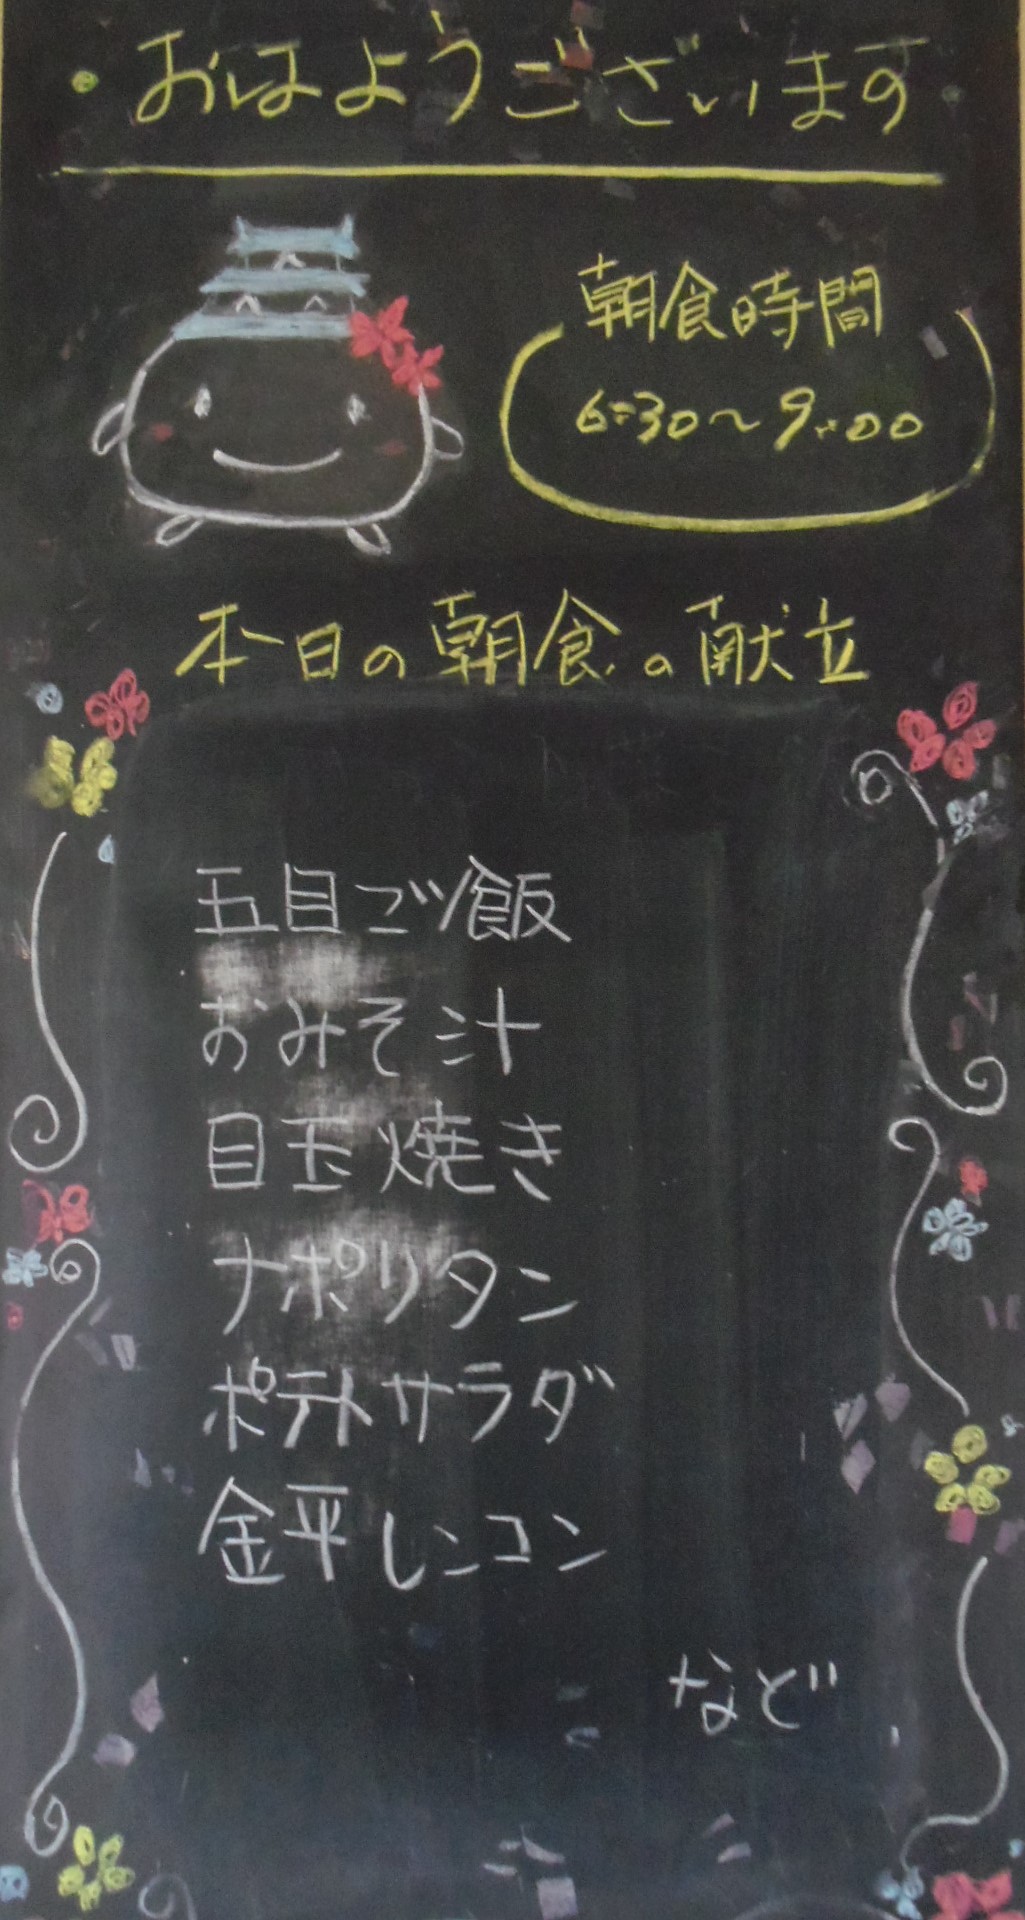 ・おはようございます
朝食時間
6:30～9:00
本日の朝食の献立
五目ご飯
おみそ汁
目玉焼き
ナポリタン
ポテトサラダ
金平レンコン
など